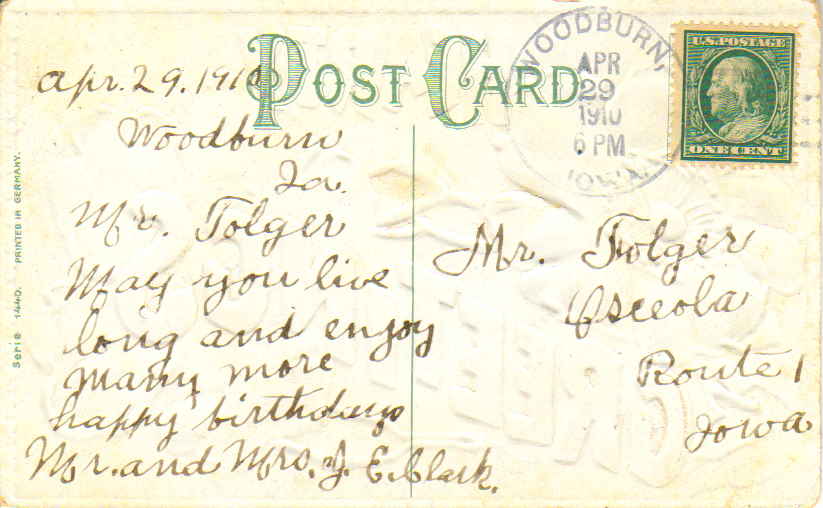 POST CARD
WOODBURN,
APR
29
1910
6 PM
IOWA
U.S. POSTAGE
ONE CENT
Apr. 29. 1910
Woodburn
Ia.
Mr. Folger
May you live
long and enjoy
many more
happy birthdays
Mr. and Mrs. J. E. Clark.
Mr. Folger
Osceola
Route 1
Iowa
Serie 1440. PRINTED IN GERMANY.